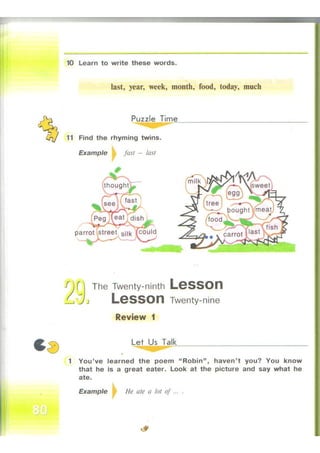 10 Learn to write these words.
last, year, week, month, food, today, much
Puzzle Time
11 Find the rhyming twins.
Example fast – last
thought
see
fast
Peg
eat
dish
parrot
street
silk
could
milk
sweet
egg
tree
bought
meat
food
fish
carrot
last
29. The Twenty-ninth Lesson
Lesson Twenty-nine
Review 1
Let Us Talk
1 You've learned the poem "Robin", haven't you? You know
that he is a great eater. Look at the picture and say what he
ate.
Example He ate a lot of ... .
80